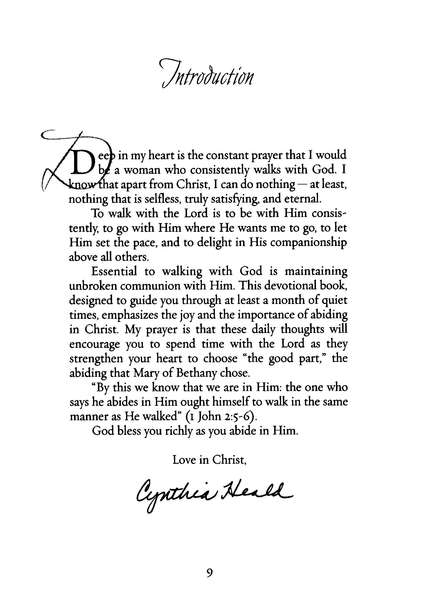 Introduction
Deep in my heart is the constant prayer that I would
be a woman who consistently walks with God. I
know that apart from Christ, I can do nothing — at least,
nothing that is selfless, truly satisfying, and eternal.
To walk with the Lord is to be with Him consis-
tently, to go with Him where He wants me to go, to let
Him set the pace, and to delight in His companionship
above all others.
Essential to walking with God is maintaining
unbroken communion with Him. This devotional book,
designed to guide you through at least a month of quiet
times, emphasizes the joy and the importance of abiding
in Christ. My prayer is that these daily thoughts will
encourage you to spend time with the Lord as they
strengthen your heart to choose “the good part,” the
abiding that Mary of Bethany chose.
“By this we know that we are in Him: the one who
says he abides in Him ought himself to walk in the same
manner as He walked” (1 John 2:5-6).
God bless you richly as you abide in Him.
Love in Christ,
Cynthia Heald
9